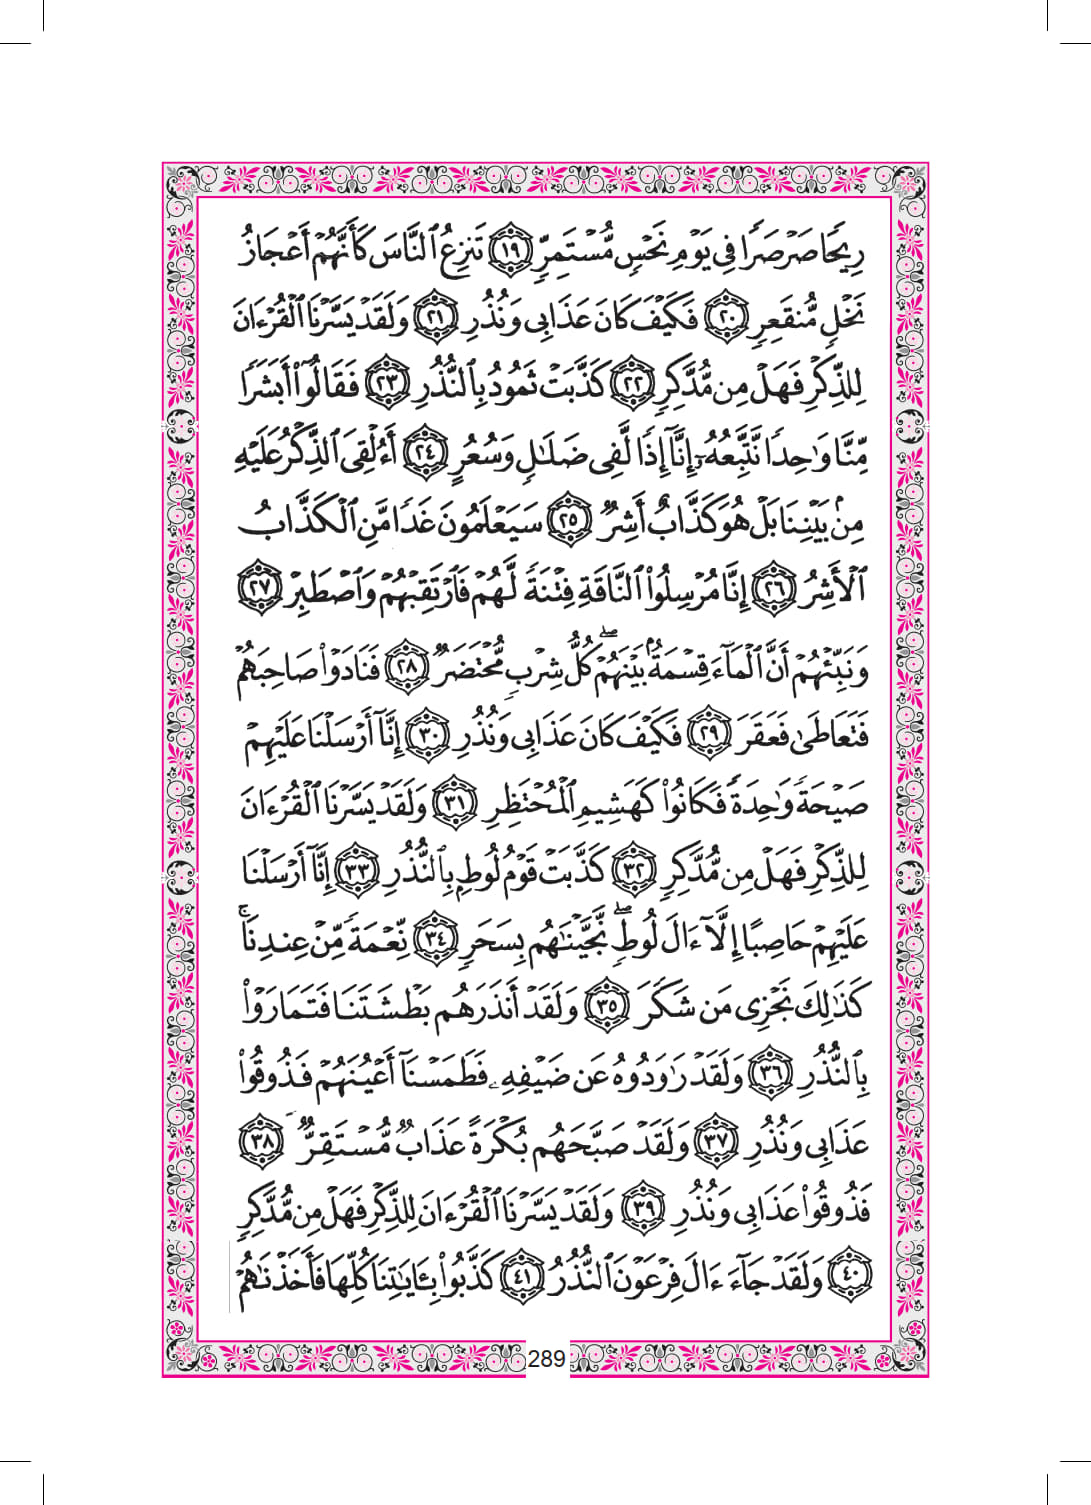 رِيحًا صَرْصَرًا فِي يَوْمِ نَحْسٍ مُّسْتَمِرٍّ ١٩ تَنزِعُ ٱلنَّاسَ كَأَنَّهُمْ أَعْجَازُ
نَخْلٍ مُّنقَعِرٍ ٢٠ فَكَيْفَ كَانَ عَذَابِى وَنُذُرِ ٢١ وَلَقَدْ يَسَّرْنَا ٱلْقُرْءَانَ
لِلذِّكْرِ فَهَلْ مِن مُّدَّكِرٍ ٢٢ كَذَّبَتْ ثَمُودُ بِٱلنُّذُرِ ٢٣ فَقَالُوٓا۟ أَبَشَرًا
مِّنَّا وَٰحِدًا نَّتَّبِعُهُۥٓ إِنَّآ إِذًا لَّفِى ضَلَٰلٍ وَسُعُرٍ ٢٤ أَءُلْقِىَ ٱلذِّكْرُ عَلَيْهِ
مِنۢ بَيْنِنَا بَلْ هُوَ كَذَّابٌ أَشِرٌ ٢٥ سَيَعْلَمُونَ غَدًا مَّنِ ٱلْكَذَّابُ
ٱلْأَشِرُ ٢٦ إِنَّا مُرْسِلُوا۟ ٱلنَّاقَةِ فِتْنَةً لَّهُمْ فَٱرْتَقِبْهُمْ وَٱصْطَبِرْ ٢٧
وَنَبِّئْهُمْ أَنَّ ٱلْمَآءَ قِسْمَةٌۢ بَيْنَهُمْ ۖ كُلُّ شِرْبٍ مُّحْتَضَرٌ ٢٨ فَنَادَوْا۟ صَاحِبَهُمْ
فَتَعَاطَىٰ فَعَقَرَ ٢٩ فَكَيْفَ كَانَ عَذَابِى وَنُذُرِ ٣٠ إِنَّآ أَرْسَلْنَا عَلَيْهِمْ
صَيْحَةً وَٰحِدَةً فَكَانُوا۟ كَهَشِيمِ ٱلْمُحْتَظِرِ ٣١ وَلَقَدْ يَسَّرْنَا ٱلْقُرْءَانَ
لِلذِّكْرِ فَهَلْ مِن مُّدَّكِرٍ ٣٢ كَذَّبَتْ قَوْمُ لُوطٍۭ بِٱلنُّذُرِ ٣٣ إِنَّآ أَرْسَلْنَا
عَلَيْهِمْ حَاصِبًا إِلَّآ ءَالَ لُوطٍ ۖ نَّجَّيْنَٰهُم بِسَحَرٍ ٣٤ نِّعْمَةً مِّنْ عِندِنَا ۚ
كَذَٰلِكَ نَجْزِى مَن شَكَرَ ٣٥ وَلَقَدْ أَنذَرَهُم بَطْشَتَنَا فَتَمَارَوْا۟
بِٱلنُّذُرِ ٣٦ وَلَقَدْ رَٰوَدُوهُ عَن ضَيْفِهِۦ فَطَمَسْنَآ أَعْيُنَهُمْ فَذُوقُوا۟
عَذَابِى وَنُذُرِ ٣٧ وَلَقَدْ صَبَّحَهُم بُكْرَةً عَذَابٌ مُّسْتَقِرٌّ ٣٨
فَذُوقُوا۟ عَذَابِى وَنُذُرِ ٣٩ وَلَقَدْ يَسَّرْنَا ٱلْقُرْءَانَ لِلذِّكْرِ فَهَلْ مِن مُّدَّكِرٍ
٤٠ وَلَقَدْ جَآءَ ءَالَ فِرْعَوْنَ ٱلنُّذُرُ ٤١ كَذَّبُوا۟ بِـَٔايَٰتِنَا كُلِّهَا فَأَخَذْنَٰهُمْ
289